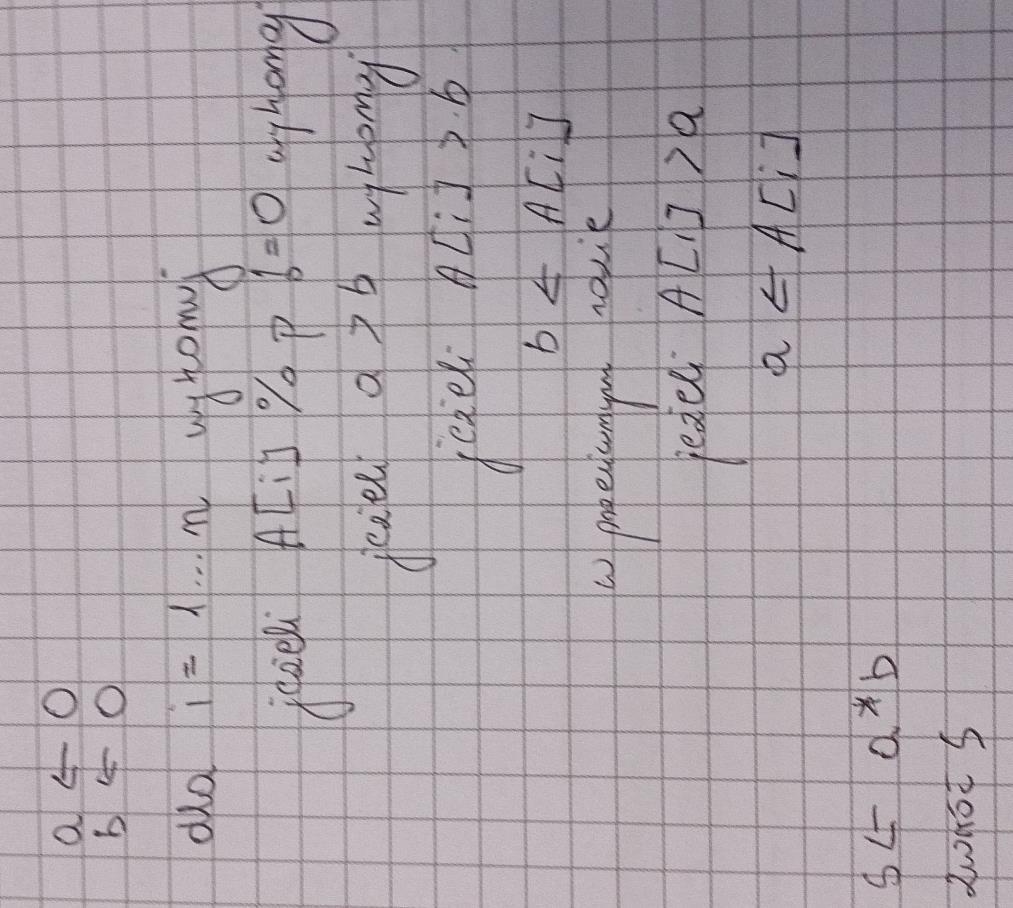 a ← 0
b ← 0
dla i = 1...n wykonuj
jeżeli A[i] % p != 0 wykonaj
jeżeli a > b wykonaj
jeżeli A[i] > b
b ← A[i]
w przeciwnym razie
jeżeli A[i] > a
a ← A[i]
S ← a*b
zwróć S